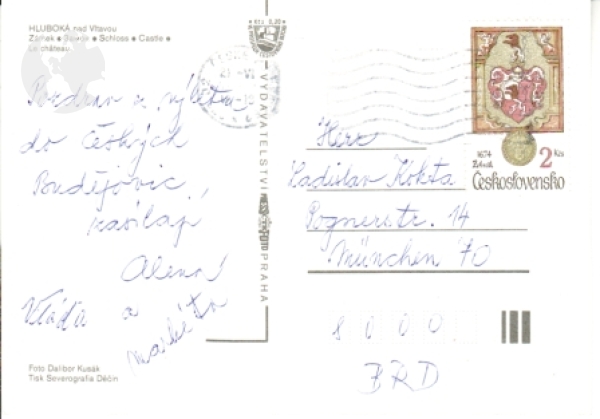 HLUBOKÁ nad Vltavou
Zámek • Замок • Schloss • Castle •
Le château
Kčs 0,20
VYDAVATELSTVÍ
PRAHA
Pozdrav z výletu
do Českých
Budějovic,
zasílají
Alena,
Vláďa a
Markéta
Foto Dalibor Kusák
Tisk Severografia Děčín
1674
2 Kčs
Československo
Herr
Ladislav Kokta
Pognerstr. 14
München 70
8000
BRD